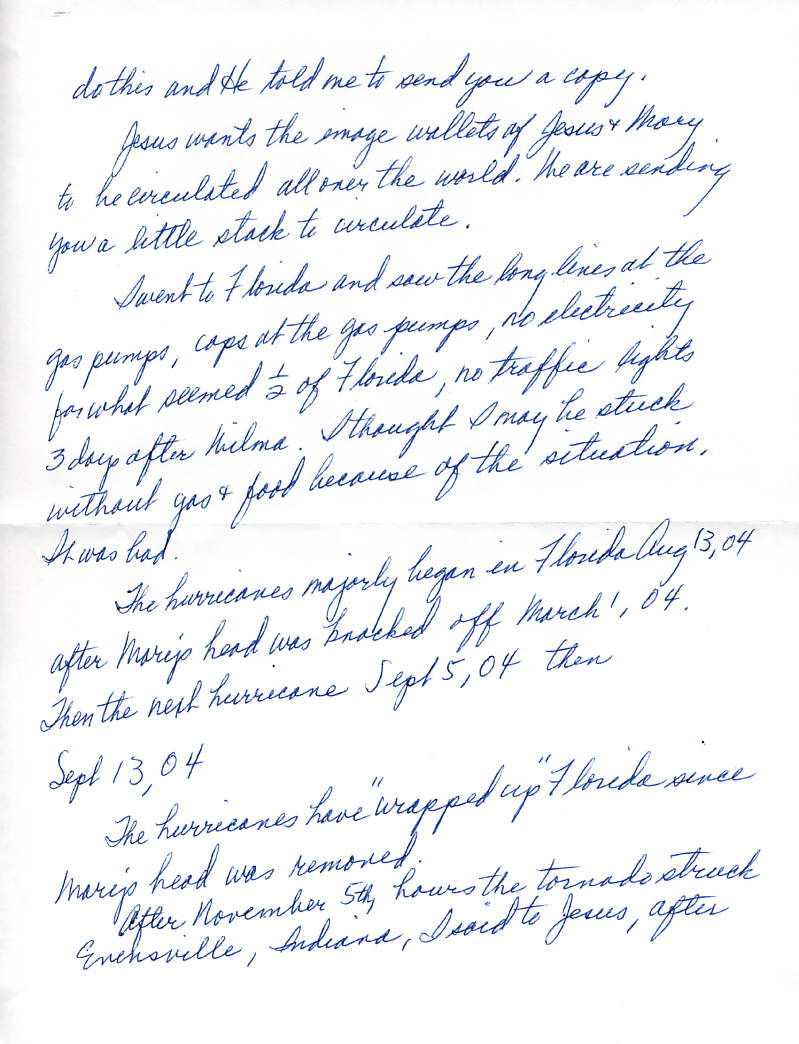 do this and He told me to send you a copy.
Jesus wants the image wallets of Jesus & Mary
to be circulated all over the world. We are sending
you a little stack to circulate.
I went to Florida and saw the long lines at the
gas pumps, cops at the gas pumps, no electricity
for what seemed ½ of Florida, no traffic lights
3 days after Wilma. I thought I may be stuck
without gas & food because of the situation.
It was bad.
The hurricanes majorly began in Florida Aug 13, 04
after Mary's head was knocked off March 1, 04.
Then the next hurricane Sept 5, 04 then
Sept 13, 04
The hurricanes have "wrapped up" Florida since
Mary's head was removed.
After November 5th, hours the tornado struck
Evensville, Indiana, I said to Jesus, after